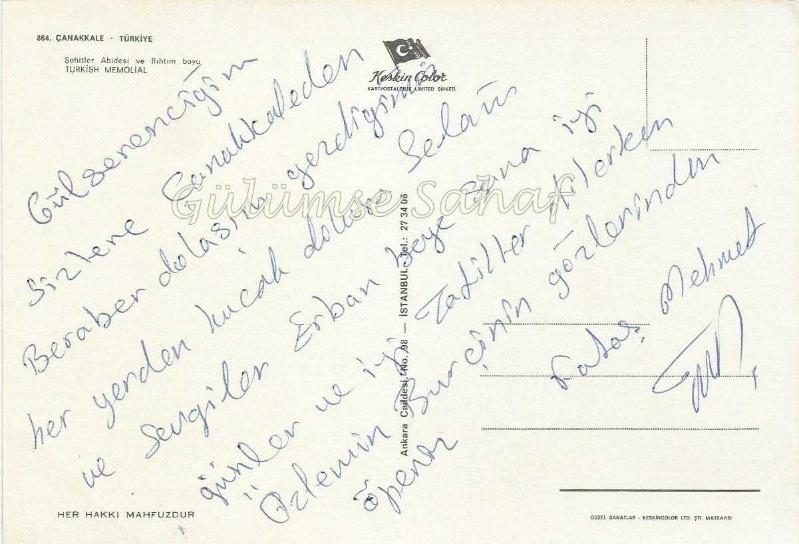 864. ÇANAKKALE - TÜRKİYE
Şehitler Abidesi ve Rıhtım boyu
TURKİSH MEMOLİAL
Keskin Color
KARTPOSTALCILIK LİMİTED ŞİRKETİ
Gülserenciğim
Sizlere Çanakkaleden
Beraber dolaşıp gezdiğimiz
her yerden kucak dolusu Selam
ve sevgiler Erban beye sana iyi
günler ve iyi Tatiller dilerken
Özlemin Burçinin gözlerinden
öperiz
Mehmet
Gülümse Sahaf
Ankara Caddesi, No. 98 — İSTANBUL - Tel.: 27 34 06
HER HAKKI MAHFUZDUR
GÜZEL SANATLAR - KESKİNCOLOR LTD. ŞTİ. MATBAASI